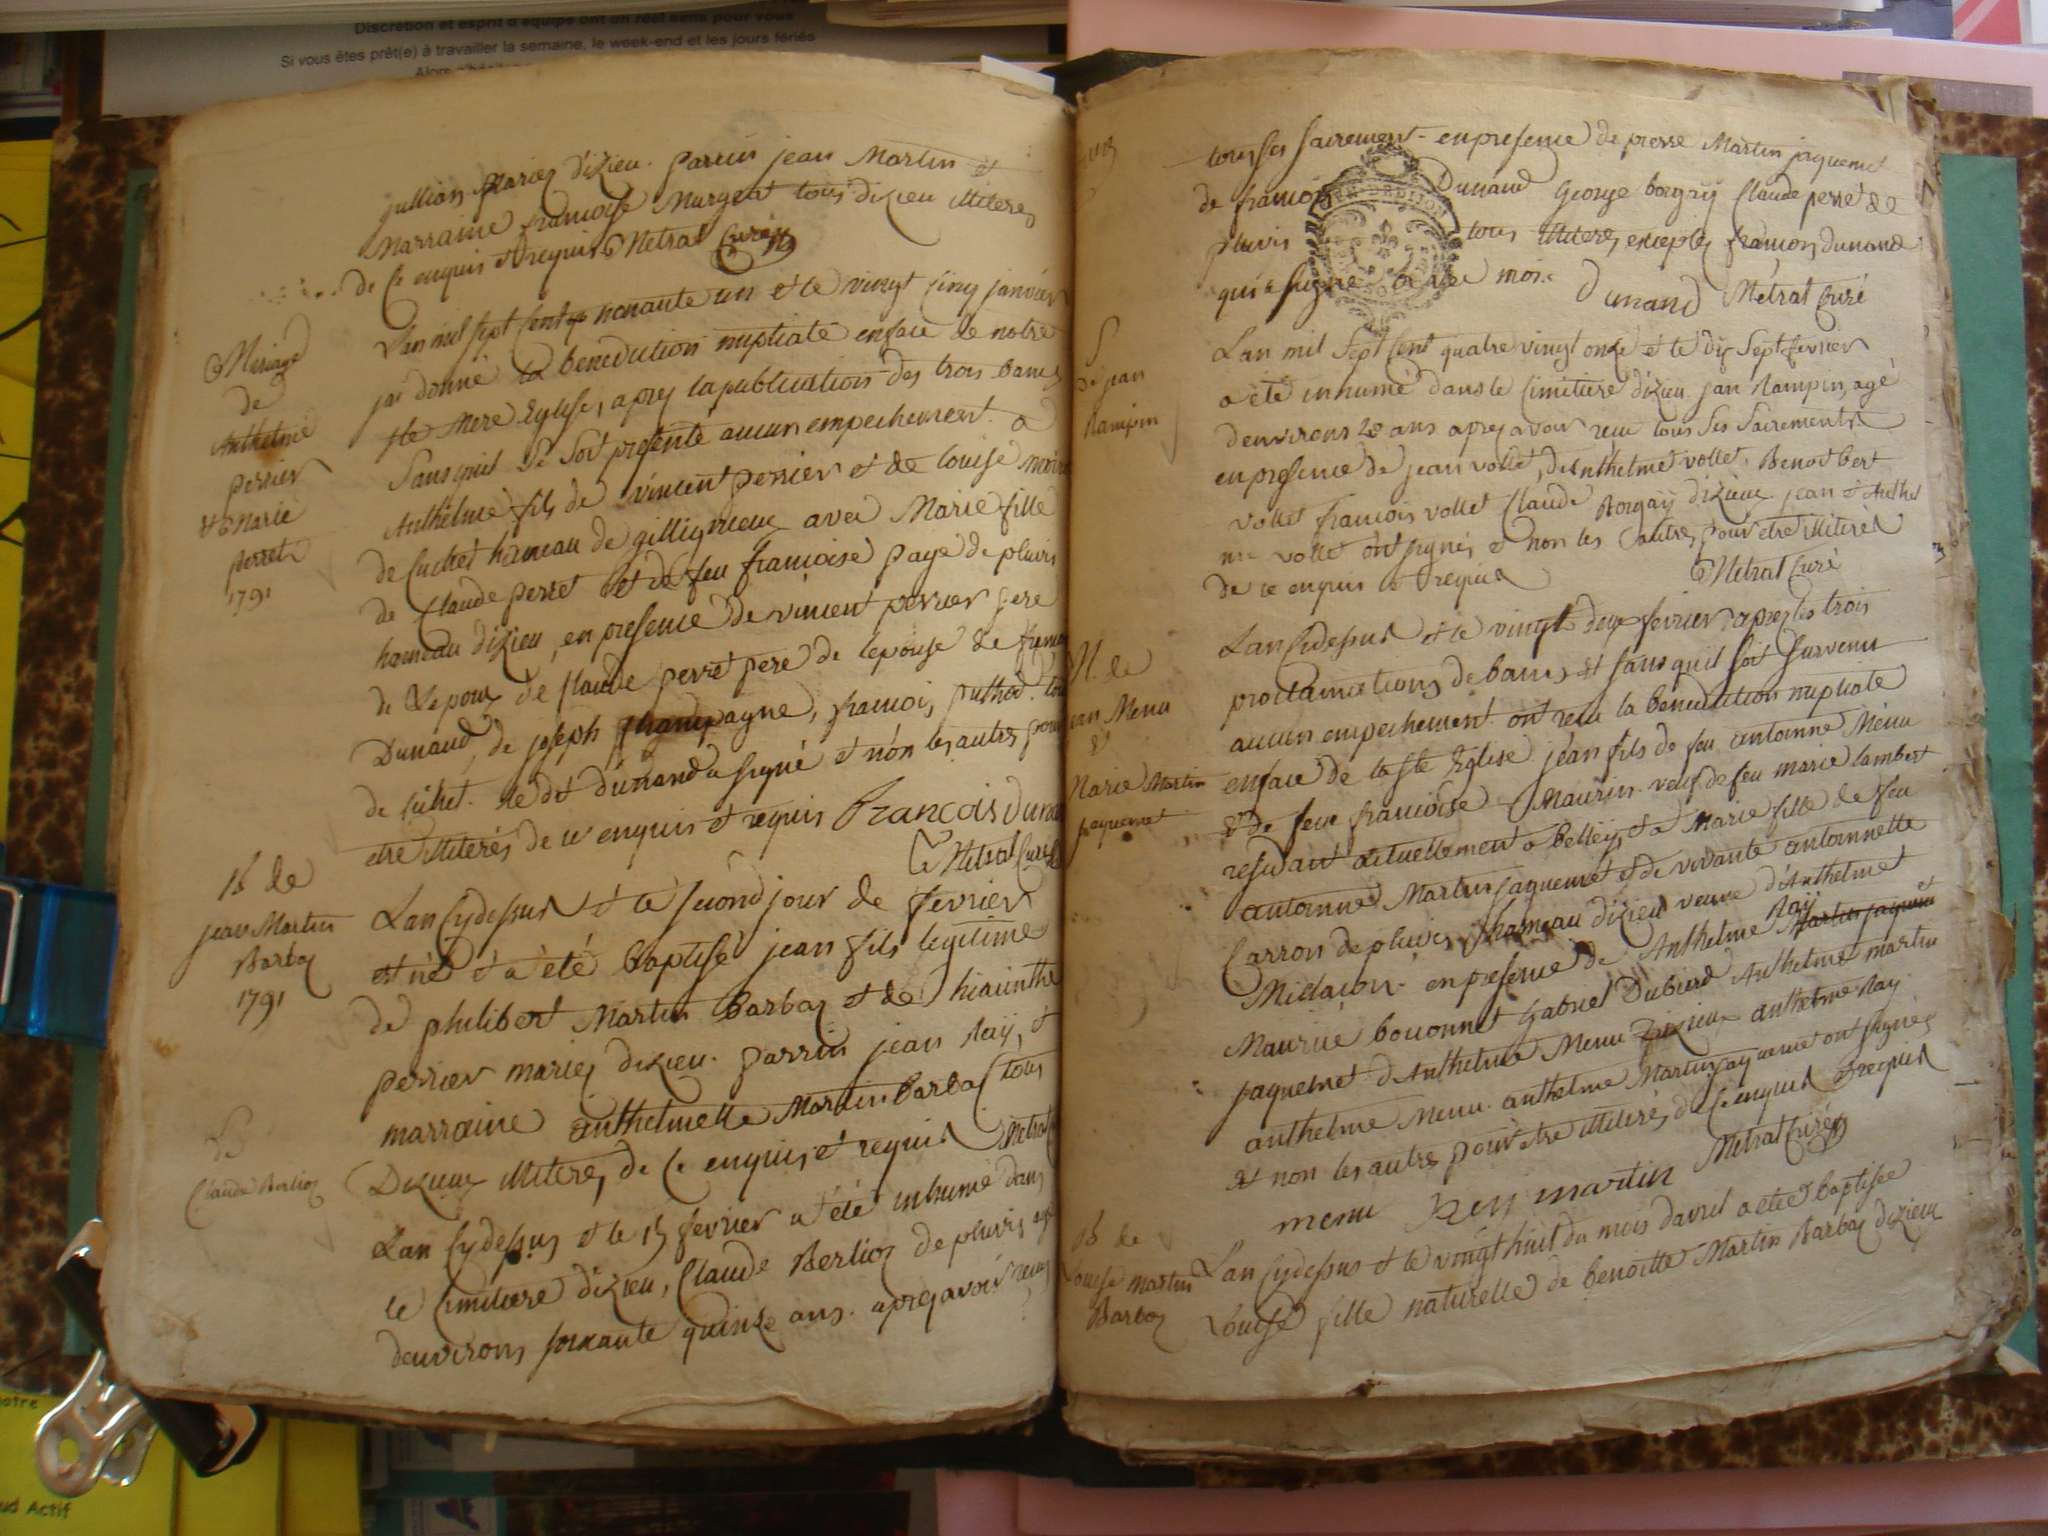 Discrétion et esprit d'équipe ont un réel sens pour vous
Si vous êtes prêt(e) à travailler la semaine, le week-end et les jours fériés
jullian mariez d'izieu. parrin jean Martin et
marraine francoise Murgert tous dizieu illiterés
de ce enquis et requis Metrat Curé
Mariage
de
Anthelme
perrier
et Marie
perret
1791
Lan mil sept cent nonante un et le vingt cinq janvier
jai donné la benediction nuptiale enface de notre
ste Mere Eglise, apres la publication des trois bancs
sans quil se soit presenté aucun empechement a
Anthelme fils de vincent perrier et de louise
de Cuchet hameau de gillignieux avec Marie fille
de Claude perret et de feu francoise page de pluvis
hameau dizieu, en presence de vincent perrier pere
de Lepoux de Claude perret pere de lepouse de
Dunand, de joseph Champagne, francois
de Cuchet. le dit dunand a signé et non les autres pour
etre illiterés de ce enquis et requis francois Dunand
Metrat Curé
B de
jean Martin
Barbaz
1791
Lan cydessus et le second jour de fevrier
est né et a été baptisé jean fils legitime
de philibert Martin Barbaz et de hiacinthe
perrier mariez dizieu. parrin jean Raÿ, et
marraine anthelmette Martin barbaz tous
Dizieux illiterés de ce enquis et requis Metrat
S
Claude Berlioz
Lan cydessus et le 15 fevrier a été inhumé dans
le cimitiere dizieu, Claude Berlioz de pluvis agé
denvirons soixante quinze ans. apres avoir recus
tous ses sacrements en presence de pierre Martin jaquemet
de francois Dunand George borgaÿ Claude perret de
pluvis tous illiterés exceptez francois dunand
qui a signé avec moi. Dunand Metrat Curé
S
de jean
Rampin
Lan mil sept cent quatre vingt onze et le dix sept fevrier
a été inhumé dans le cimitiere dizieu jan Rampin, agé
denvirons 28 ans apres avoir recu tous ses sacrements
en presence de jean vollet, de Anthelme vollet, Benoit bert
vollet francois vollet Claude Borgaÿ dizieux. jean et Anthel
me vollet ont signés et non les autres pour etre illiterés
de ce enquis et requis Metrat Curé
M. de
jean Menu
&
Marie Martin
jaquemet
Lan cydessus et le vingt deux fevrier apres les trois
proclamations de bancs et sans quil soit survenu
aucun empechement ont recu la benediction nuptiale
enface de la ste Eglise jean fils de feu antoinne Menu
& de feue francoise Maurin veuf de feu marie lambert
residant actuellement a belley, et a Marie fille de feu
antoinne Martin jaquemet et de vivante antoinnette
Carron de pluvis hameau dizieu veuve d'Anthelme
Midaion. en presence de Anthelme Raÿ
Maurice bouonnet Gabriel Dubierd Anthelme martin
jaquemet d'Anthelme Menu dizieux anthelme Ray
anthelme Menu. anthelme Martin jaquemet ont signés
et non les autres pour etre illiterés de ce enquis et requis
menu Rey martin Metrat Curé
B de
Louise martin
Barbaz
Lan cydessus et le vingt huit du mois davril a été baptisée
Louise fille naturelle de benoitte Martin Barbaz dizieu
ud Actif